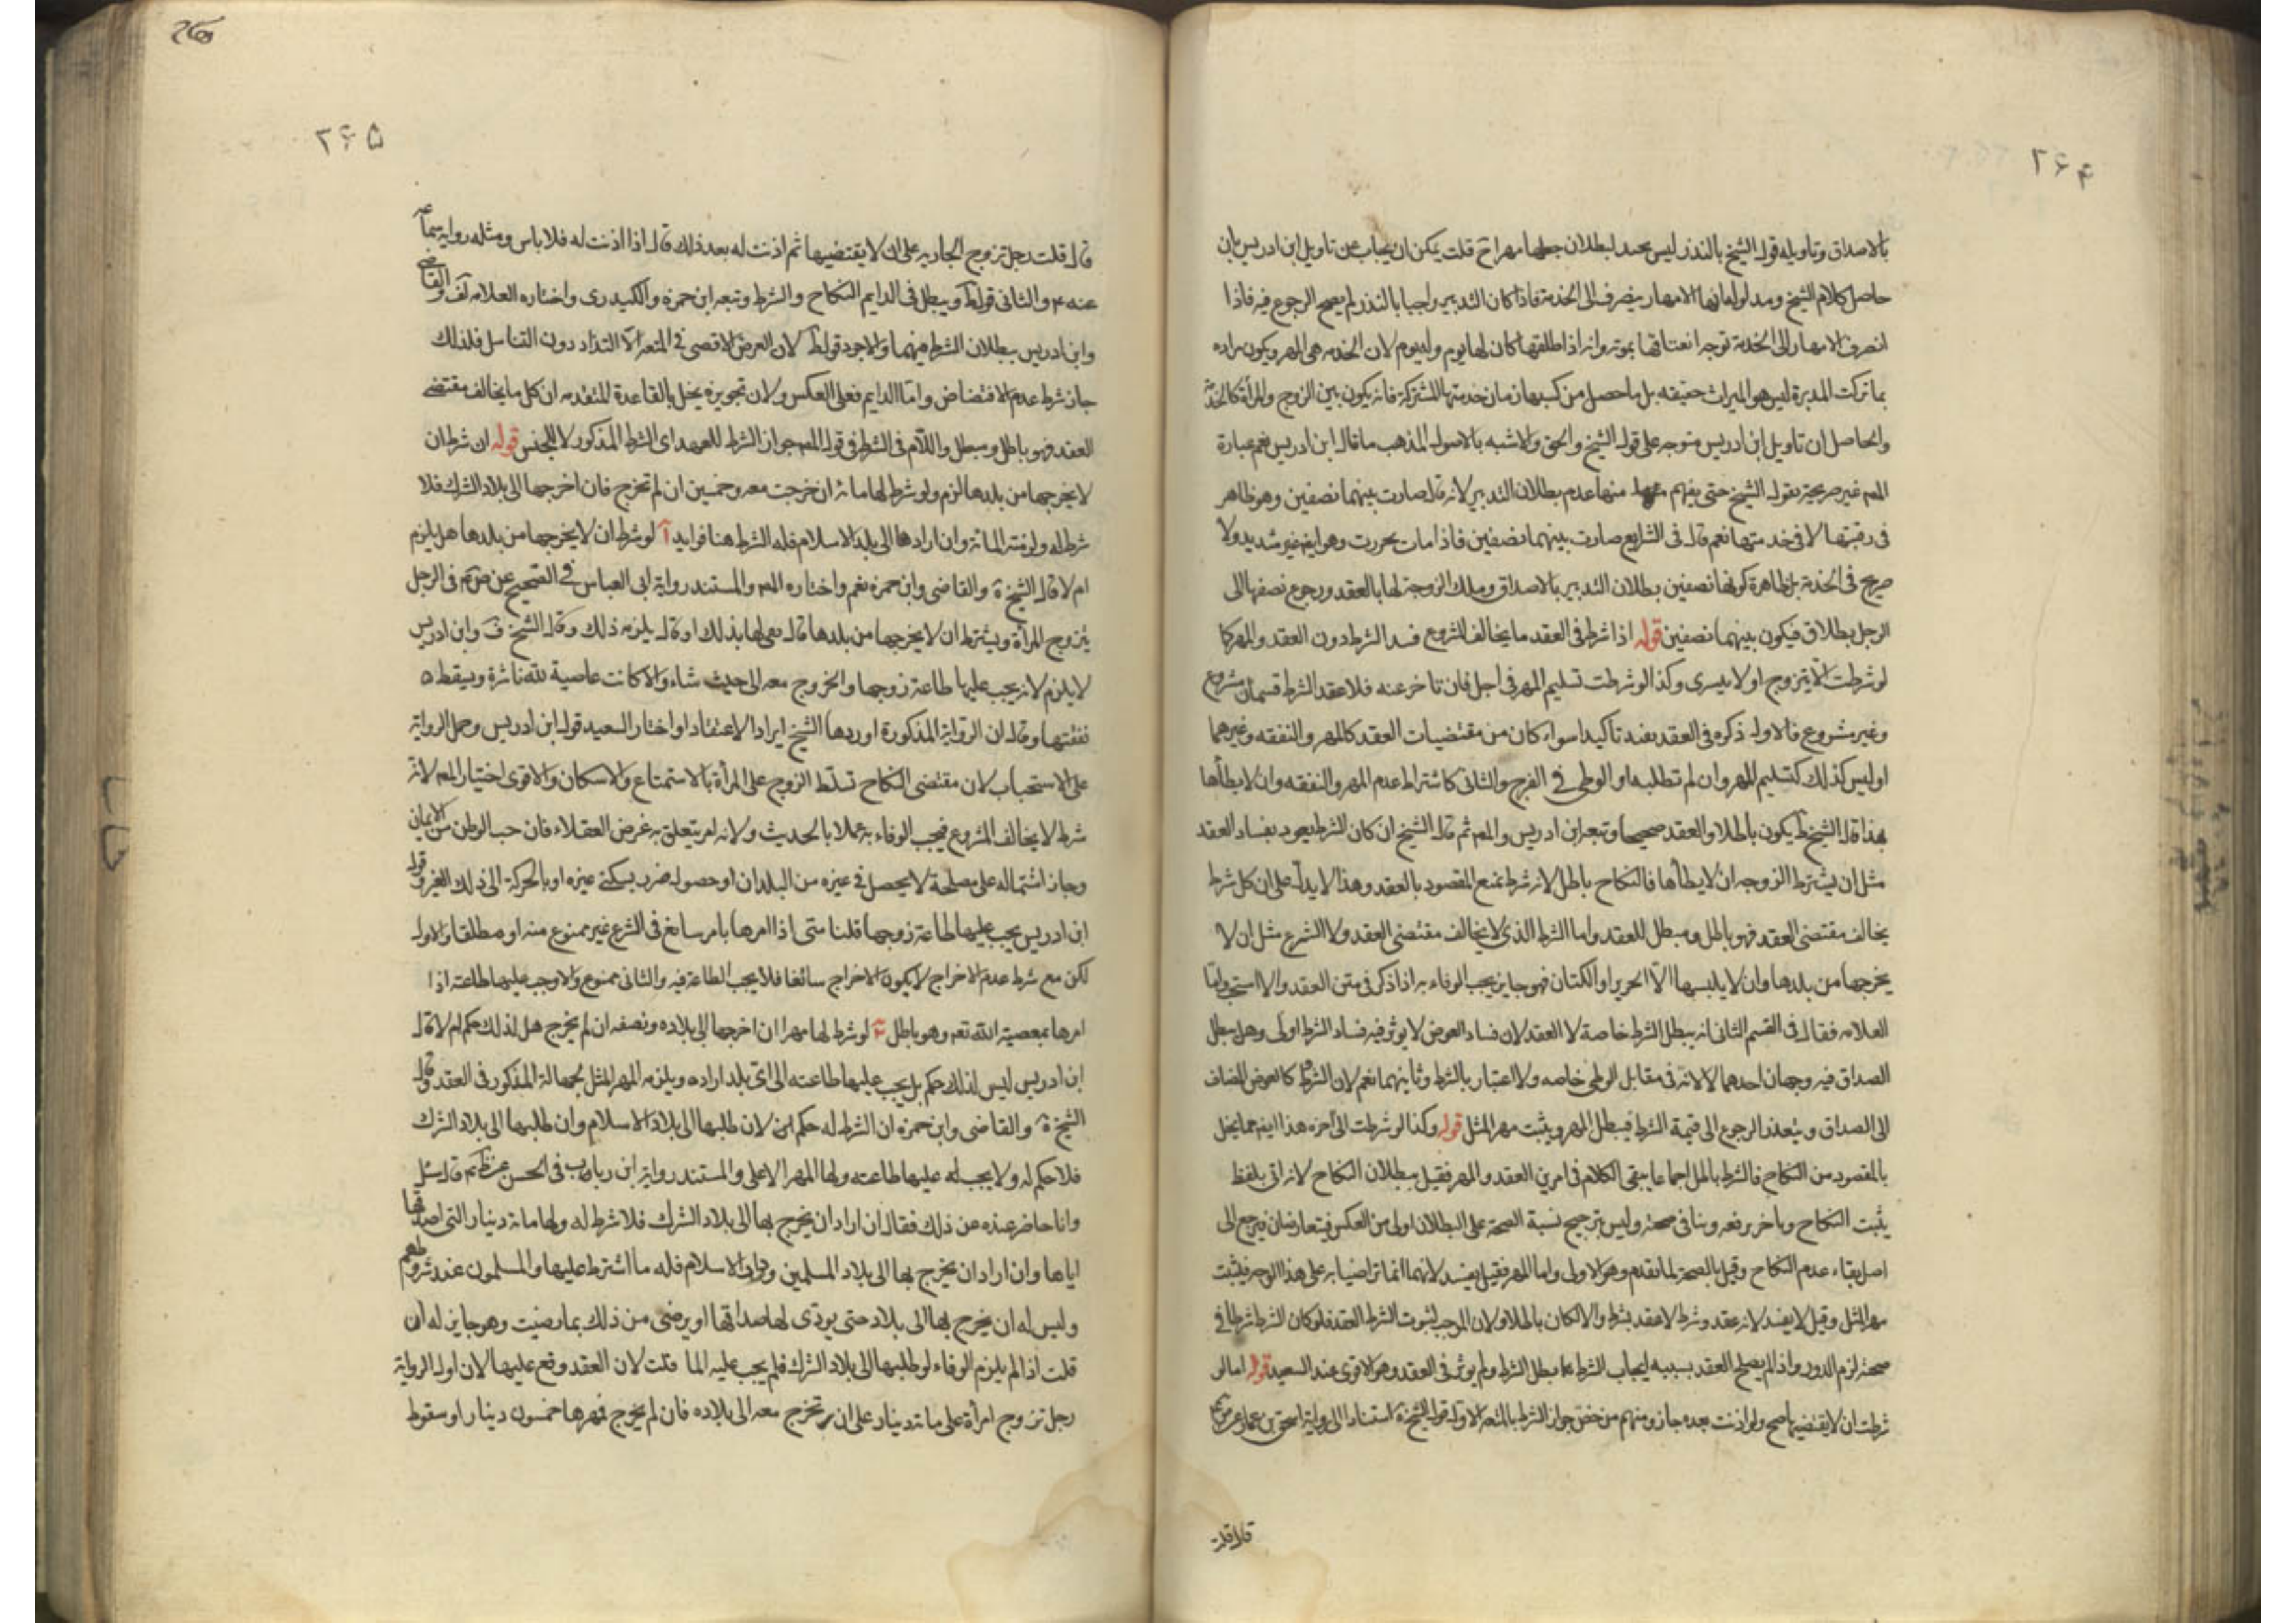 ۲۶۴
بالاصداق وتاويله قول الشيخ بالنذر ليس بجيد لبطلان جعلها مهرا ح قلت يمكن ان يجاب عن تاويل ابن ادريس بان
حاصل كلام الشيخ ومدلوله انها الامهار ينصرف الى الخدمة فاذا كان التدبير واجبا بالنذر لم يصح الرجوع فيه فاذا
انصرف الامهار الى الخدمة توجه انعتاقها بموته وانه اذا طلقها كان لها يوم وله يوم لان الخدمه هى المهر ويكون مراده
بما تركت المدبرة ليس هو الميراث حقيقه بل ما حصل من كسبها زمان خدمتها المشتركة فانه يكون بين الزوج والمرأة كالخدمة
والحاصل ان تاويل ابن ادريس متوجه على قول الشيخ والحق والاشبه بالاصول المذهب ما قال ابن ادريس نعم عبارة
المص غير صريحة بقول الشيخ حتى يفهم منها عدم بطلان التدبير لانه قال صارت بينهما نصفين وهو ظاهر
فى رقبتها لا فى خدمتها نعم قال فى الشرايع صارت بينهما نصفين فاذا مات تحررت وهو ايضا غير شديد ولا
صريح فى الخدمة بل ظاهرة كونها نصفين بطلان التدبير بالاصداق وملك الزوجة لها بالعقد ورجوع نصفها الى
الرجل بطلاق فيكون بينهما نصفين قوله اذا شرط فى العقد ما يخالف المشروع فسد الشرط دون العقد والمهر كا
لو شرطت الا يتزوج او لا يتسرى وكذا لو شرطت تسليم المهر فى اجل فان تاخر عنه فلا عقد الشرط قسمان مشروع
وغير مشروع فالاول ذكره فى العقد يفيد تاكيدا سواء كان من مقتضيات العقد كالمهر والنفقه وغيرهما
او ليس كذلك كتسليم المهر وان لم تطلبه او الوطى فى الفرج والثانى كاشتراط عدم المهر والنفقه وان لا يطأها
بهذا قال الشيخ ط يكون باطلا والعقد صحيحا وتبعه ابن ادريس والمص ثم قال الشيخ ان كان الشرط يعود بفساد العقد
مثل ان يشترط الزوجه ان لا يطأها فالنكاح باطل لانه شرط يمنع المقصود بالعقد وهذا لا يدل على ان كل شرط
يخالف مقتضى العقد فهو باطل ومبطل للعقد واما الشرط الذى لا يخالف مقتضى العقد ولا الشرع مثل ان لا
يخرجها من بلدها وان لا يلبسها الا الحرير او الكتان فهو جايز يجب الوفاء به اذا ذكر فى متن العقد والا استحب واما
العلامه فقال فى القسم الثانى انه يبطل الشرط خاصة لا العقد لان فساد العوض لا يوثر فيه فساد الشرط اولى وهل يبطل
الصداق فيه وجهان احدهما لا لانه فى مقابل الوطى خاصه ولا اعتبار بالشرط وثانيهما نعم لان الشرط كالعوض المضاف
الى الصداق ويتعذر الرجوع الى قيمة الشرط فيبطل المهر ويثبت مهر المثل قوله وكذا لو شرطت الى آخره هذا ايضا مما يخل
بالمقصود من النكاح فالشرط باطل اجماعا يبقى الكلام فى امرين العقد والمهر فقيل ببطلان النكاح لانه اتى بلفظ
يثبت النكاح وباخر يرفعه وينافى صحته وليس ترجيح نسبة الصحة على البطلان اولى من العكس فيتعارضان فيرجع الى
اصل بقاء عدم النكاح وقيل بالصحة لما تقدم وهو الاولى واما المهر فقيل يفسد لانهما انما تراضيا به على هذا الوجه فيثبت
مهر المثل وقيل لا يفسد لانه عقد وشرط لا عقد بشرط والا لكان باطلا ولان الموجب لثبوت الشرط العقد فلو كان الشرط شرطا فى
صحته لزم الدور واذا لم يصلح العقد بسببه ايجاب الشرط بطل الشرط ولم يوثر فى العقد وهو الاقوى عند السعيد قوله اما لو
شرطت ان لا يقتضيها صح ولو اذنت بعده جاز ومنهم من خص جواز الشرط بالمتعه الاول قول الشيخ استنادا الى رواية اسحق بن عمار عن
۲۶۵
قال قلت رجل تزوج الجارية على ان لا يقتضيها ثم اذنت له بعد ذلك قال اذا اذنت له فلا باس ومثله رواية سماعة
عنه ع والثانى قوله ط ويبطل فى الدايم النكاح والشرط وتبعه ابن حمزه والكيدرى واختاره العلامه لف والقاضى
وابن ادريس ببطلان الشرط فيهما والاجود قوله ط لان الغرض الاقصى فى المتعه الالتذاد دون التناسل فلذلك
جاز شرط عدم الافتضاض واما الدايم فعلى العكس ولان تجويزه يخل بالقاعدة المتقدمه ان كل ما يخالف مقتضى
العقد فهو باطل ومبطل واللام فى الشرط فى قول المص جواز الشرط للعهد اى الشرط المذكور لا للجنس قوله ان شرط ان
لا يخرجها من بلدها لزم ولو شرط لها مائة ان خرجت معه وخمسين ان لم تخرج فان اخرجها الى بلاد الشرك فلا
شرط له ولزمته المائة وان ارادها الى بلد الاسلام فله الشرط هنا فوايد آ لو شرط ان لا يخرجها من بلدها هل يلزم
ام لا قال الشيخ والقاضى وابن حمزه نعم واختاره المص والمستند رواية ابى العباس فى الصحيح عن ص ع فى الرجل
يتزوج المرأة ويشترط ان لا يخرجها من بلدها قال يفى لها بذلك او قال يلزمه ذلك وقال الشيخ ف وابن ادريس
لا يلزم لانه يجب عليها طاعة زوجها والخروج معه الى حيث شاء والا كانت عاصية لله ناشزة ويسقط
نفقتها وقال ان الرواية المذكورة اوردها الشيخ ايرادا لا اعتقادا واختار السعيد قول ابن ادريس وحمل الرواية
على الاستحباب لان مقتضى النكاح تسلط الزوج على المرأة بالاستمتاع والاسكان والاقوى اختيار المص لانه
شرط لا يخالف المشروع فيجب الوفاء به عملا بالحديث ولانه امر يتعلق به غرض العقلاء فان حب الوطن من الايمان
وجاز اشتماله على مصلحة لا يحصل فى غيره من البلدان او حصول ضرر بسكنى غيره او بالحركة الى ذلك الغير وقول
ابن ادريس يجب عليها طاعة زوجها قلنا متى اذا امرها بامر سائغ فى الشرع غير ممنوع منه او مطلقا والاول
لكن مع شرط عدم الاخراج لا يكون الاخراج سائغا فلا يجب الطاعة فيه والثانى ممنوع والا وجب عليها طاعته اذا
امرها بمعصية الله تعم وهو باطل لو شرط لها مهرا ان اخرجها الى بلاده ونصفه ان لم يخرج هل لذلك حكم ام لا قال
ابن ادريس ليس لذلك حكم بل يجب عليها طاعته الى اى بلد اراده ويلزمه المهر المثل لجهالة المذكور فى العقد وقال
الشيخ والقاضى وابن حمزه ان الشرط له حكم لان طلبها الى بلاد الاسلام وان طلبها الى بلاد الشرك
فلا حكم له ولا يجب له عليها طاعته ولها المهر الاعلى والمستند رواية ابن رباب فى الحسن عن ظ م قال سئل
وانا حاضر عنده عن ذلك فقال ان اراد ان يخرج بها الى بلاد الشرك فلا شرط له ولها مائة دينار التى اصدقها
اياها وان اراد ان يخرج بها الى بلاد المسلمين ودار الاسلام فله ما اشترط عليها والمسلمون عند شروطهم
وليس له ان يخرج بها الى بلاد حتى يودى لها صداقها او يرضى من ذلك بما رضيت وهو جايز له فان
قلت اذا لم يلزم الوفاء لو طلبها الى بلاد الشرك فلم يجب عليه الما قلت لان العقد وقع عليها لان اول الرواية
رجل تزوج امرأة على مائة دينار على ان تخرج معه الى بلاده فان لم يخرج فمهرها خمسون دينار او سقوط